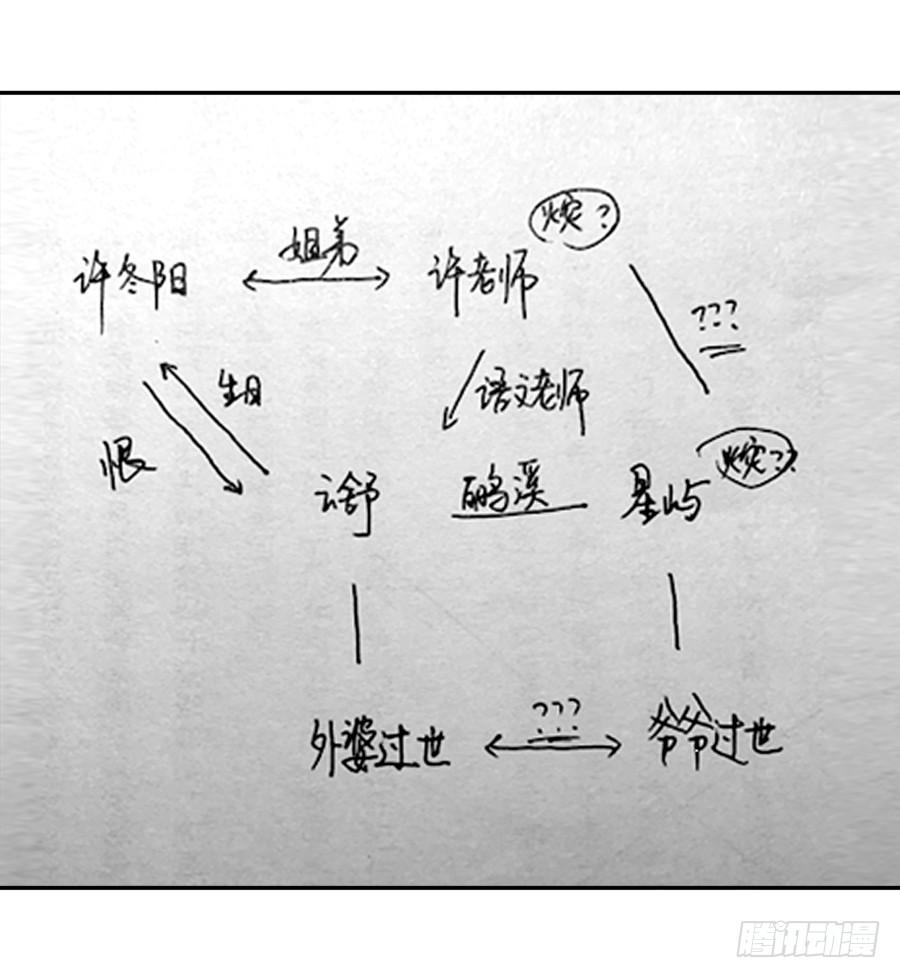 火灾？
姐弟
许冬阳
许老师
???
生日
语文老师
恨
云舒
鹏溪
星屿
火灾??
???
外婆过世
爷爷过世
腾讯动漫